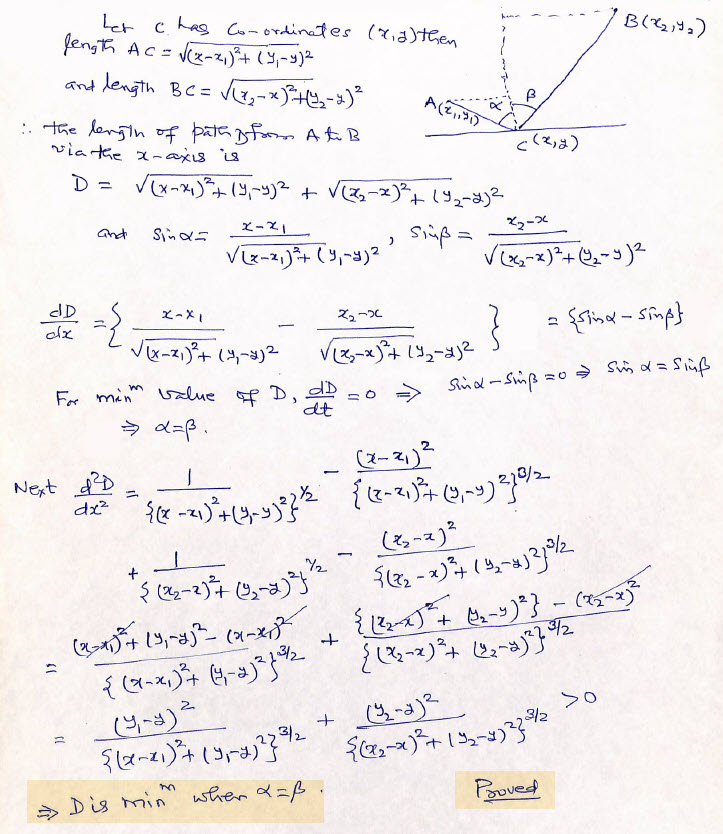 Let C has Co-ordinates (x,y) then
length AC = √(x-x₁)²+(y₁-y)²
and length BC = √(x₂-x)²+(y₂-y)²
∴ the length of path D from A to B
via the x-axis is
D = √(x-x₁)²+(y₁-y)² + √(x₂-x)²+(y₂-y)²
B(x₂,y₂)
A(x₁,y₁)
α
β
C(x,y)
and Sinα = x-x₁ / √(x-x₁)²+(y₁-y)² , Sinβ = x₂-x / √(x₂-x)²+(y₂-y)²
dD/dx = { x-x₁ / √(x-x₁)²+(y₁-y)² - x₂-x / √(x₂-x)²+(y₂-y)² } = {Sinα - Sinβ}
For minᵐ value of D, dD/dt = 0 ⇒ Sinα - Sinβ = 0 ⇒ Sinα = Sinβ
⇒ α=β.
Next d²D/dx² = 1 / {(x-x₁)²+(y₁-y)²}^½ - (x-x₁)² / {(x-x₁)²+(y₁-y)²}^3/2
+ 1 / {(x₂-x)²+(y₂-y)²}^½ - (x₂-x)² / {(x₂-x)²+(y₂-y)²}^3/2
= (x-x₁)²+(y₁-y)²-(x-x₁)² / {(x-x₁)²+(y₁-y)²}^3/2 + {(x₂-x)²+(y₂-y)²}-(x₂-x)² / {(x₂-x)²+(y₂-y)²}^3/2
= (y₁-y)² / {(x-x₁)²+(y₁-y)²}^3/2 + (y₂-y)² / {(x₂-x)²+(y₂-y)²}^3/2 >0
⇒ D is minᵐ when α=β.
Proved